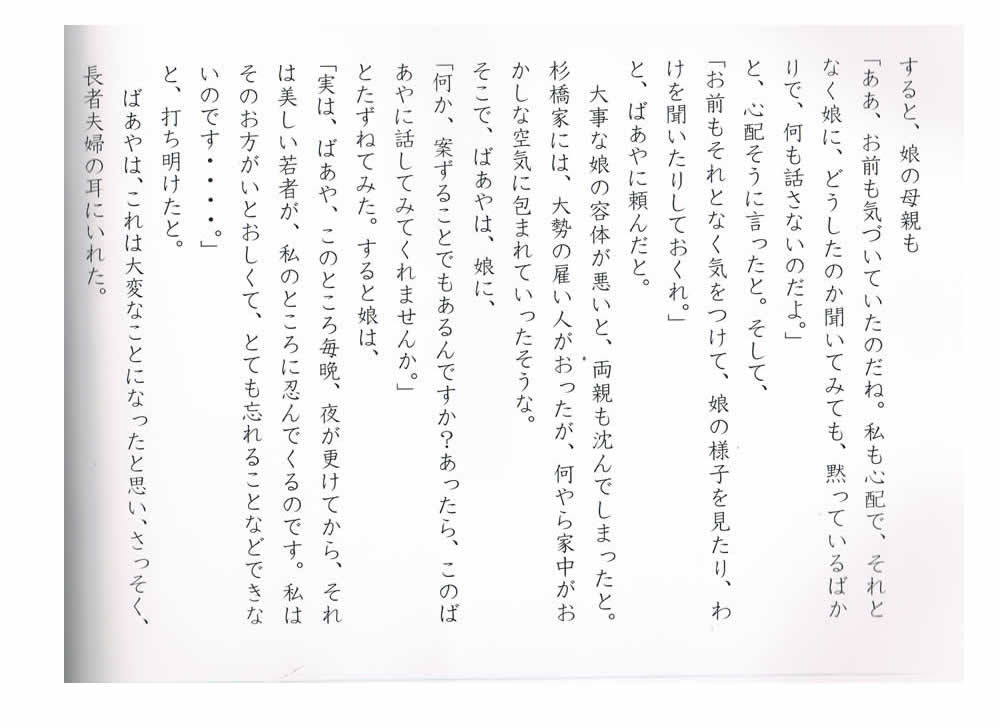 すると、娘の母親も
「ああ、お前も気づいていたのだね。私も心配で、それと
なく娘に、どうしたのか聞いてみても、黙っているばか
りで、何も話さないのだよ。」
と、心配そうに言ったと。そして、
「お前もそれとなく気をつけて、娘の様子を見たり、わ
けを聞いたりしておくれ。」
と、ばあやに頼んだと。
　大事な娘の容体が悪いと、両親も沈んでしまったと。
杉橋家には、大勢の雇い人がおったが、何やら家中がお
かしな空気に包まれていったそうな。
そこで、ばあやは、娘に、
「何か、案ずることでもあるんですか？あったら、このば
あやに話してみてくれませんか。」
とたずねてみた。すると娘は、
「実は、ばあや、このところ毎晩、夜が更けてから、それ
は美しい若者が、私のところに忍んでくるのです。私は
そのお方がいとおしくて、とても忘れることなどできな
いのです・・・・。」
と、打ち明けたと。
　ばあやは、これは大変なことになったと思い、さっそく、
長者夫婦の耳にいれた。